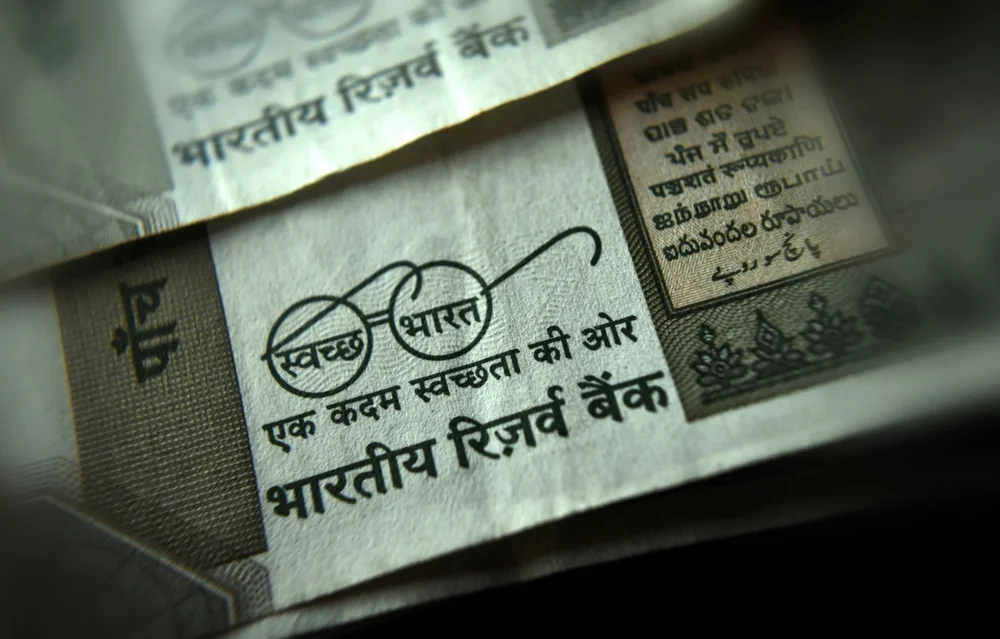 एक कदम स्वच्छता की ओर
भारतीय रिज़र्व बैंक
पाँच
स्वच्छ भारत
एक कदम स्वच्छता की ओर
भारतीय रिज़र्व बैंक
ਪੰਜ ਸੌ ਰੁਪਏ
पञ्चशतं रूप्यकाणि
ஐந்நூறு ரூபாய்
ఐదువందల రూపాయలు
پانچ سو روپے